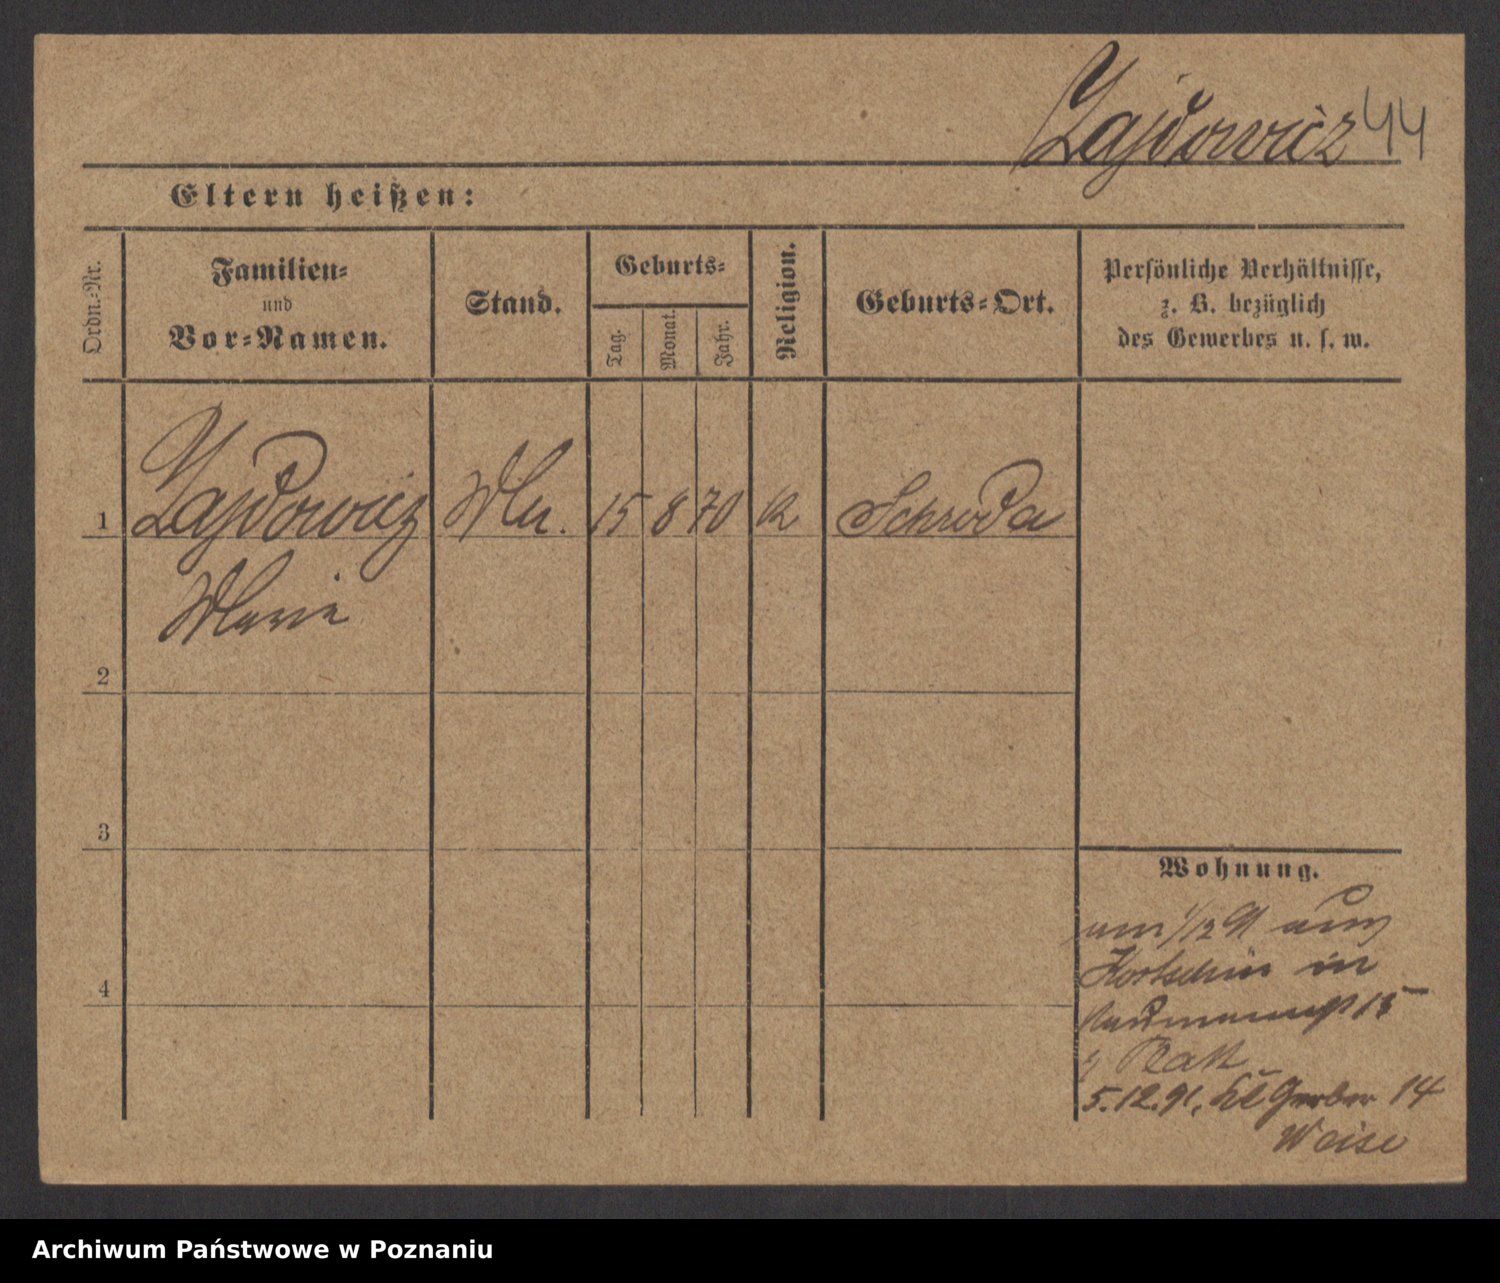 Zajdowicz 44
Eltern heißen:
Ordn.-Nr.
Familien-
und
Vor-Namen.
Stand.
Geburts-
Tag.
Monat.
Jahr.
Religion.
Geburts-Ort.
Persönliche Verhältnisse,
z. B. bezüglich
des Gewerbes u. s. w.
1 Zajdowicz 15 8 70 k Schroda
Marie
2
3
4
Wohnung.
am 1/12 91 aus
in
15
5.12.91. Kl Gerber 14
Weise
Archiwum Państwowe w Poznaniu